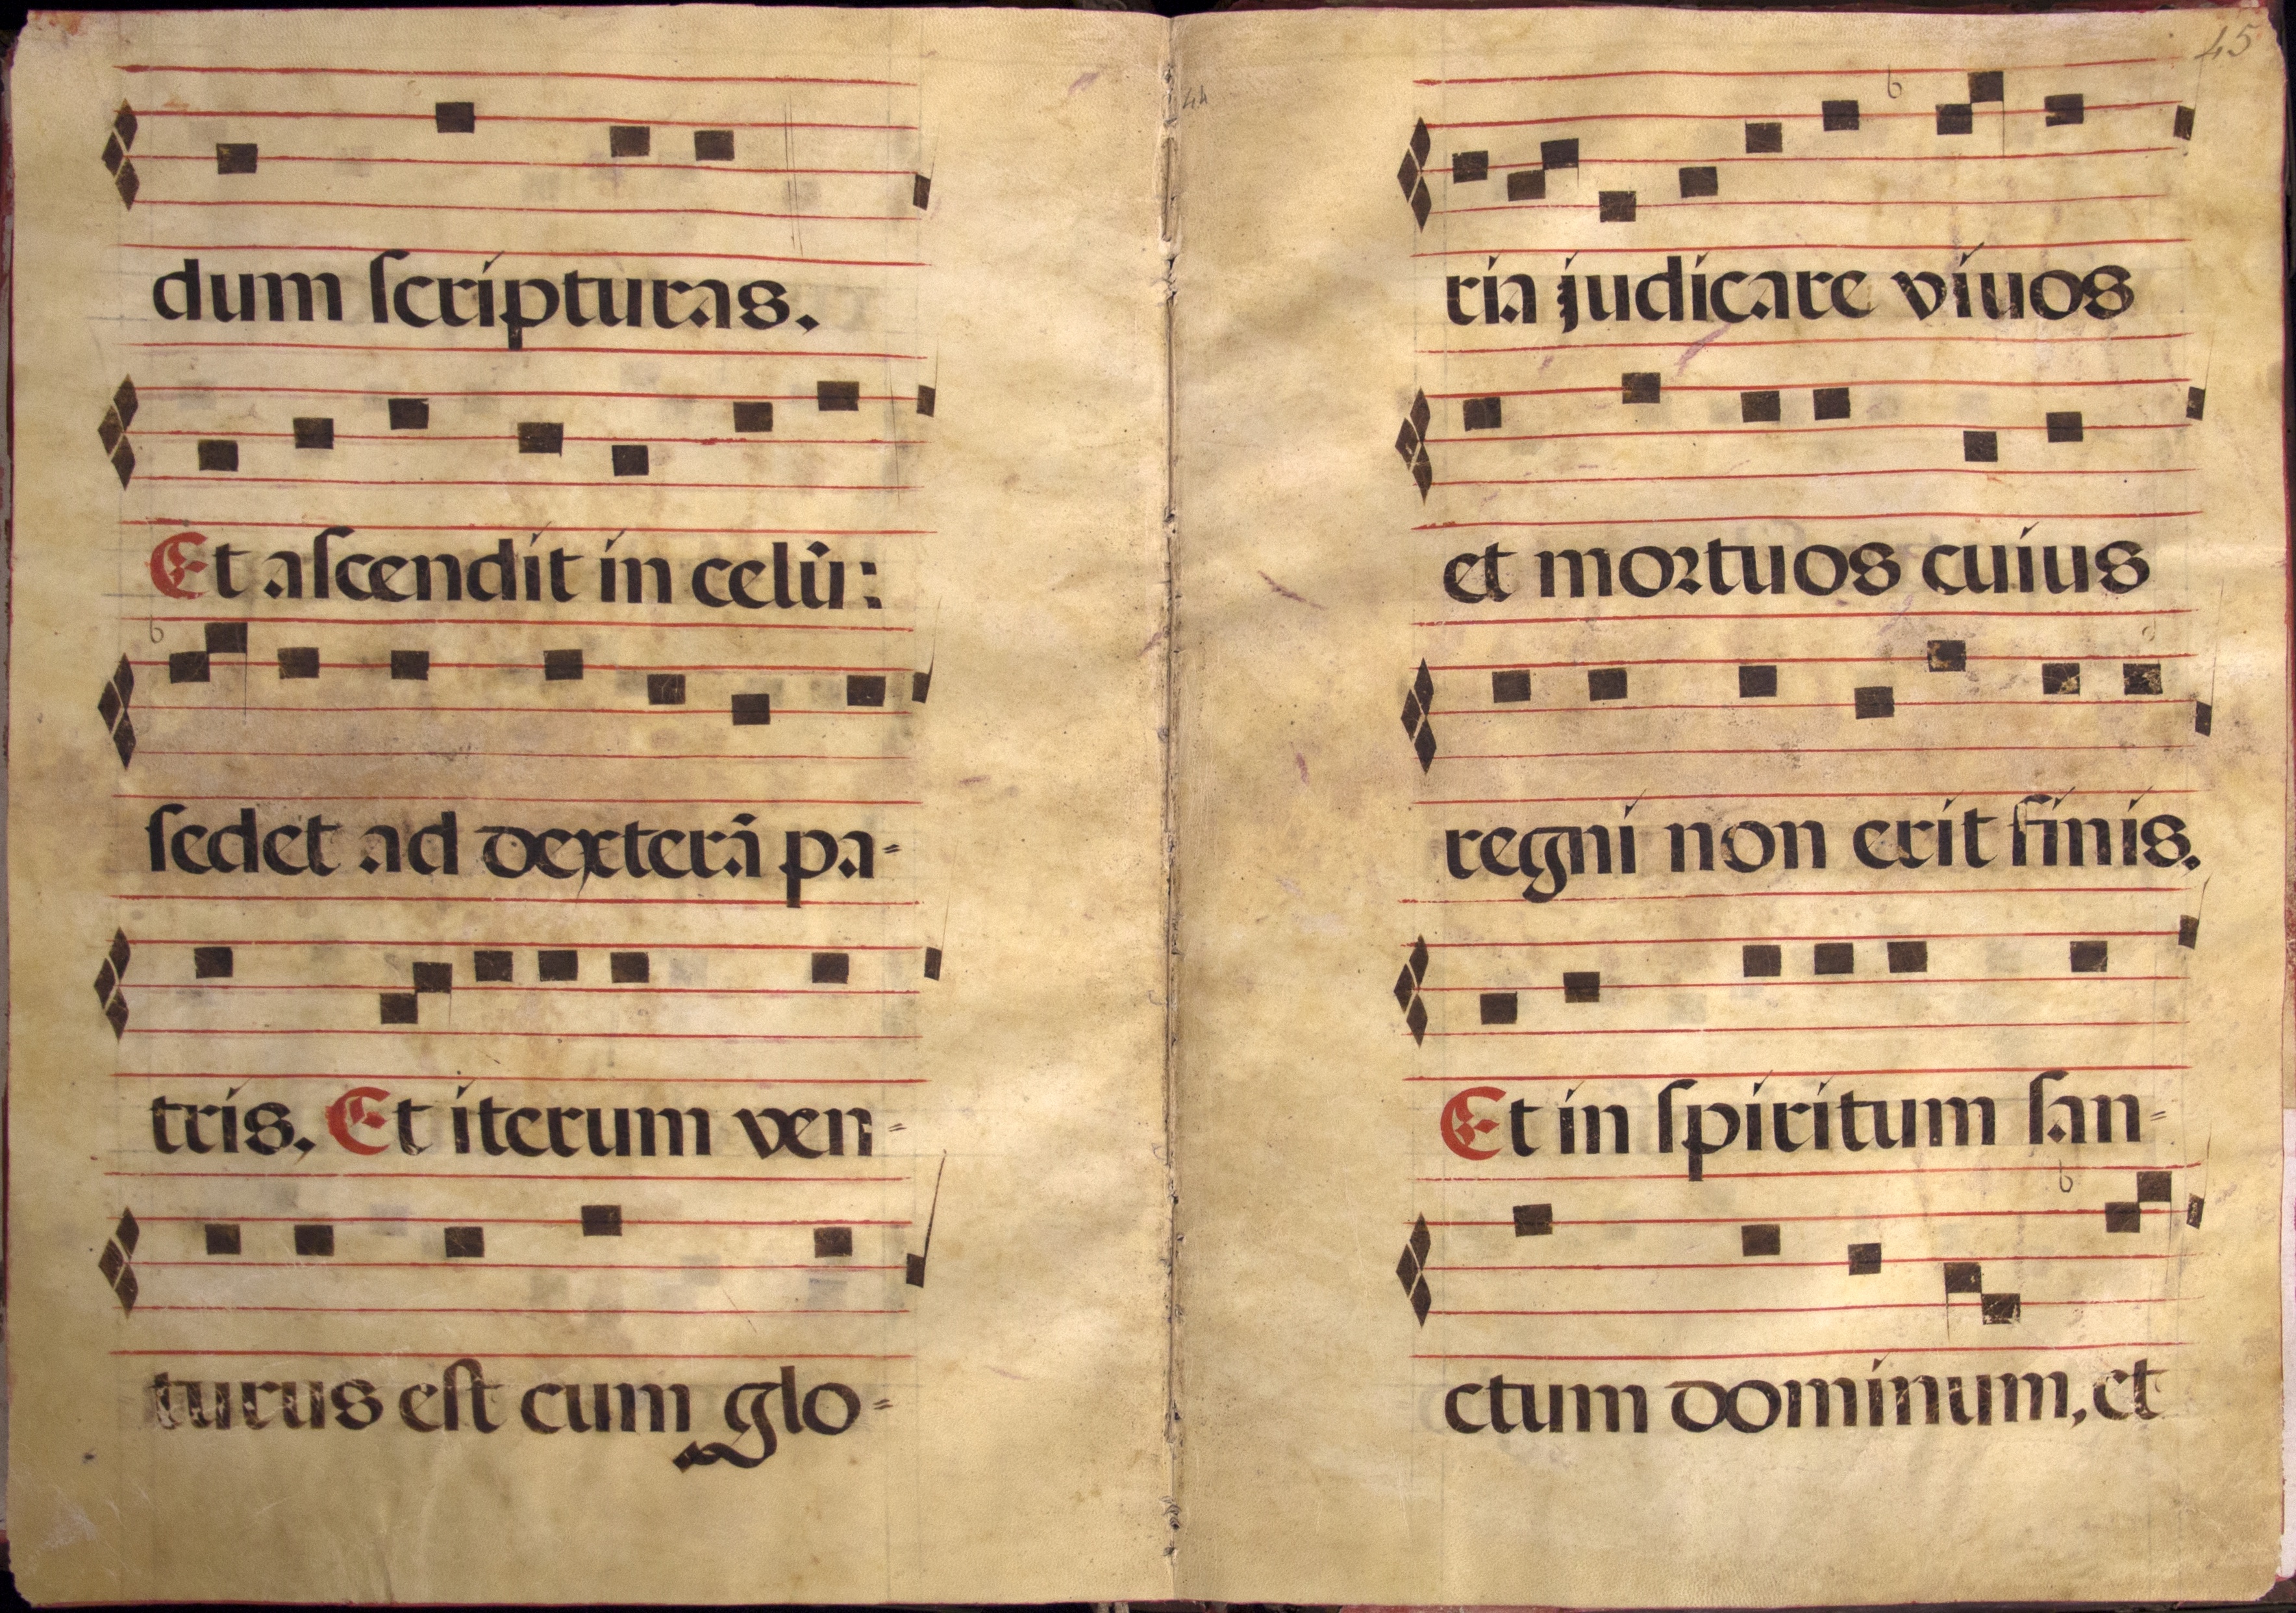 dum ſcripturas.
Et aſcendit in celū:
ſedet ad dexterā pa-
tris. Et iterum ven-
turus eſt cum glo-
44
45
ria judicare viuos
et moꝛtuos cuius
regni non erit finis.
Et in ſpiritum ſan-
ctum dominum, et